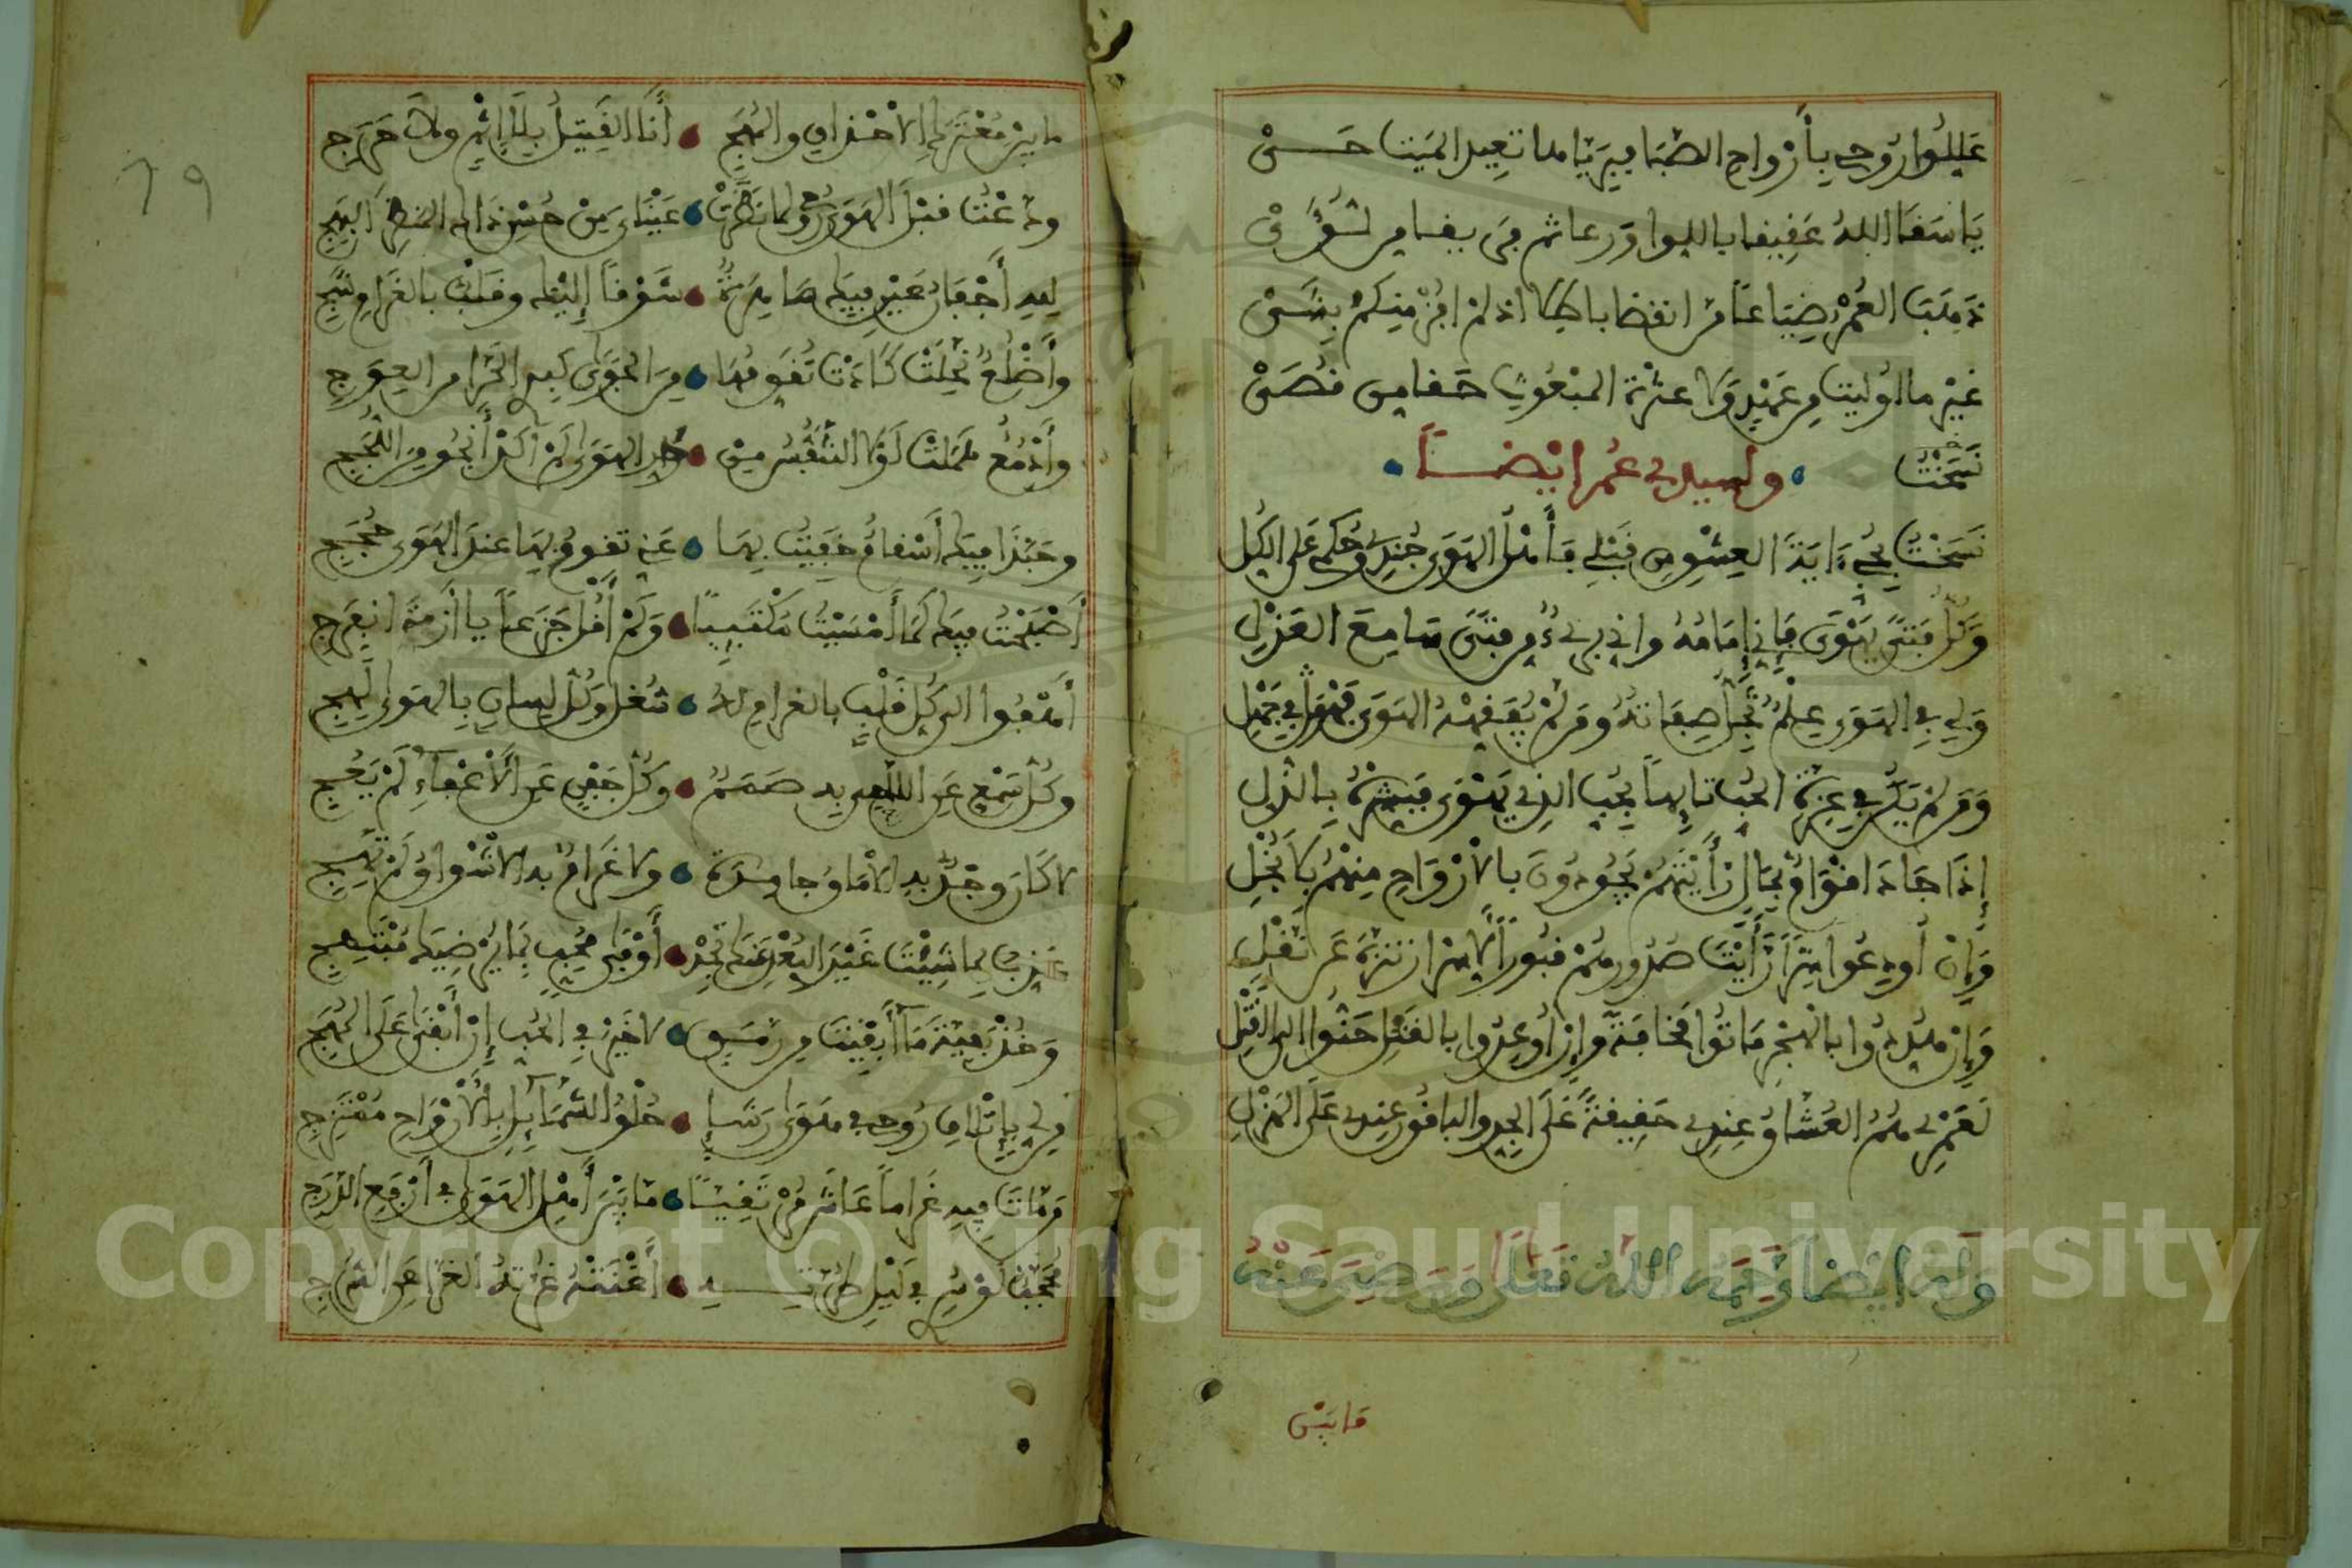 عَلِّلُوا رُوحِي بِأَرْوَاحِ الصَّبَا فَبِرَيَّاهَا تَعِيدُ الْمَيْتَ حَيّْ
يَا سَقَا اللهُ عَقِيقًا بِاللِّوا وَرعا ثم فَرِيقًا مِن لُؤَيّْ
ذَهَبَ الْعُمْرُ ضِيَاعًا وَانقضا باطلا اذ لمْ افُزْ مِنكمْ بِشَيْ
غَيْرَ ما اوُليت مِن عَهْدِ وَلَا عِتْرَةِ المبْعُوثِ حقا من قُصَيْ
نَسَخْتُ
وَلسيدي عُمر ايْضًا
نَسَخْتُ بِحُبِّي ءَايَةَ العِشْقِ مِن قَبْلِي فَأَهْلُ الهَوَى جُندِي وَحُكْمِي عَلَى الكُلِّ
وَكُلُّ فَتًى يَهْوَى فَإِنِّي إِمَامُهُ وإني بريءٌ مِن فَتًى سَامِعَ العَذْلِ
وَلِي فِي الهَوَى عِلْمٌ تَجِلُّ صِفَاتُهُ وَمَن لَمْ يُفَقِّهْهُ الهَوَى فَهْوَ فِي جَهْلِ
وَمَن لَمْ يَكُن فِي عِزَّةِ الحُبِّ تَايِهاً بِحُبِّ الذِي يَهْوَى فَبَشِّرْهُ بِالذُّلِّ
إِذَا جَادَ اقْوَامٌ بِمَالٍ رَأَيْتَهُمْ يَجُودُونَ بِالأَرْوَاحِ مِنْهُمْ بِلَا بُخْلِ
وَإِنْ أُودِعُوا سِرًّا رَأَيْتَ صُدُورَهُمْ قُبُورًا لِأَسْرَارٍ تَنَزَّهُ عَن نَقْلِ
وَإِن هُدِّدُوا بِالهَجْرِ مَاتُوا مَخَافَةً وَإِن أُوعِدُوا بِالقَتْلِ حَنُّوا إِلَى القَتْلِ
لَعَمْرِي هُمُ العُشَّاقُ عِنْدِي حَقِيقَةً عَلَى الجِدِّ والبَاقُونَ عِندِي عَلَى الهَزْلِ
وَلَه ايضا رَحِمَهُ اللهُ تَعَلَى وَرَضِيَ عَنْهُ
مَا بَيْنَ
مَا بَيْنَ مُعْتَرَكِ الأَحْدَاقِ وَالمُهَجِ أَنَا القَتِيلُ بِلَا إِثْمٍ وَلَا حَرَجِ
وَدَّعْتُ قَبْلَ الهَوَى رُوحِي لِمَا نَظَرَتْ عَيْنَايَ مِنْ حُسْنِ ذَاكَ المنظَرِ البَهِجِ
لِلهِ أَجْفَانُ عَيْنٍ فِيكَ سَاهِرَةٌ شَوْقاً إِلَيْكَ وَقَلْبٌ بِالغَرَامِ شَجِ
وَأَضْلُعٌ نَحِلَتْ كَادَتْ تُقَوِّمُهَا مِنَ الجَوَى كَبِدِي الحَرَّا مِنَ العِوَجِ
وَأَدْمُعٌ هَمَلَتْ لَوْلَا التَّنَفُّسُ مِنْ نَارِ الهَوَى لَمْ أَكَدْ أَنْجُو مِنَ اللُّجَجِ
وَحَبَّذَا فِيكَ أَسْقَامٌ خَفِيتُ بِهَا عَنِّي تَقُومُ بِهَا عِنْدَ الهَوَى حُجَجِي
أَصْبَحْتُ فِيكَ كَمَا أَمْسَيْتُ مُكْتَيِبًا وَلَمْ أَقُلْ جَزَعاً يَا أَزْمَةُ انفَرِجِ
أَهْفُوا إِلَى كُلِّ قَلْبٍ بِالغَرَامِ لَهُ شُغْلٌ وَكُلِّ لِسَانٍ بِالهَوَى لَهِجِ
وَكُلِّ سَمْعٍ عَنِ اللَّاحِي بِهِ صَمَمٌ وَكُلِّ جَفْنٍ عَنِ الأَغْفَاءِ لَمْ يَعُجِ
لَا كَانَ وَجْدٌ بِهِ الأَمَاقُ جَامِدَةٌ وَلَا غَرَامٌ بِهِ الأَشْوَاقُ لَمْ تَهِجِ
عَذِّبْ بِمَا شِيْتَ غَيْرَ البُعْدِ عَنْكَ تَجِدْ أَوْفَى مُحِبٍّ بِمَا يُرْضِيكَ مُبْتَهِجِ
وَخُذْ بَقِيَّةَ مَا أَبْقَيْتَ مِن رَمَقٍ لَا خَيْرَ فِي الحُبِّ إِنْ أَبْقَى عَلَى المُهَجِ
مَن لِي بِإِتْلَافِ رُوحِي فِي هَوَى رَشَإٍ حُلْوِ الشَّمَايِلِ بِالأَرْوَاحِ مُمْتَزِجِ
مَن مَاتَ فِيهِ غَرَاماً عَاشَ مُرْتَقِيًا مَا بَيْنَ أَهْلِ الهَوَى فِي أَرْفَعِ الدَّرَجِ
مُحَجَّبٌ لَوْ سَرَى فِي لَيْلِ طُرَّتِهِ أَغْنَتْهُ غُرَّتُهُ الغَرَّا عَنِ السُّرُجِ